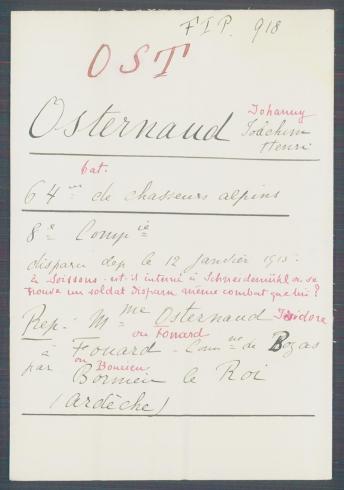 FIP. 918
OST
Osternaud Johanny
Joâchim
Henri
bat.
64me de chasseurs alpins
8e Compie
disparu dep le 12 janvier 1915.
à Soissons - est-il interné à Schneidemühl où se
trouve un soldat disparu même combat que lui ?
Rep: Mme Osternaud Isidore
ou Fouard
à Fouard - Comne de Bozas
par ou Boucieu
le Roi
(Ardèche)